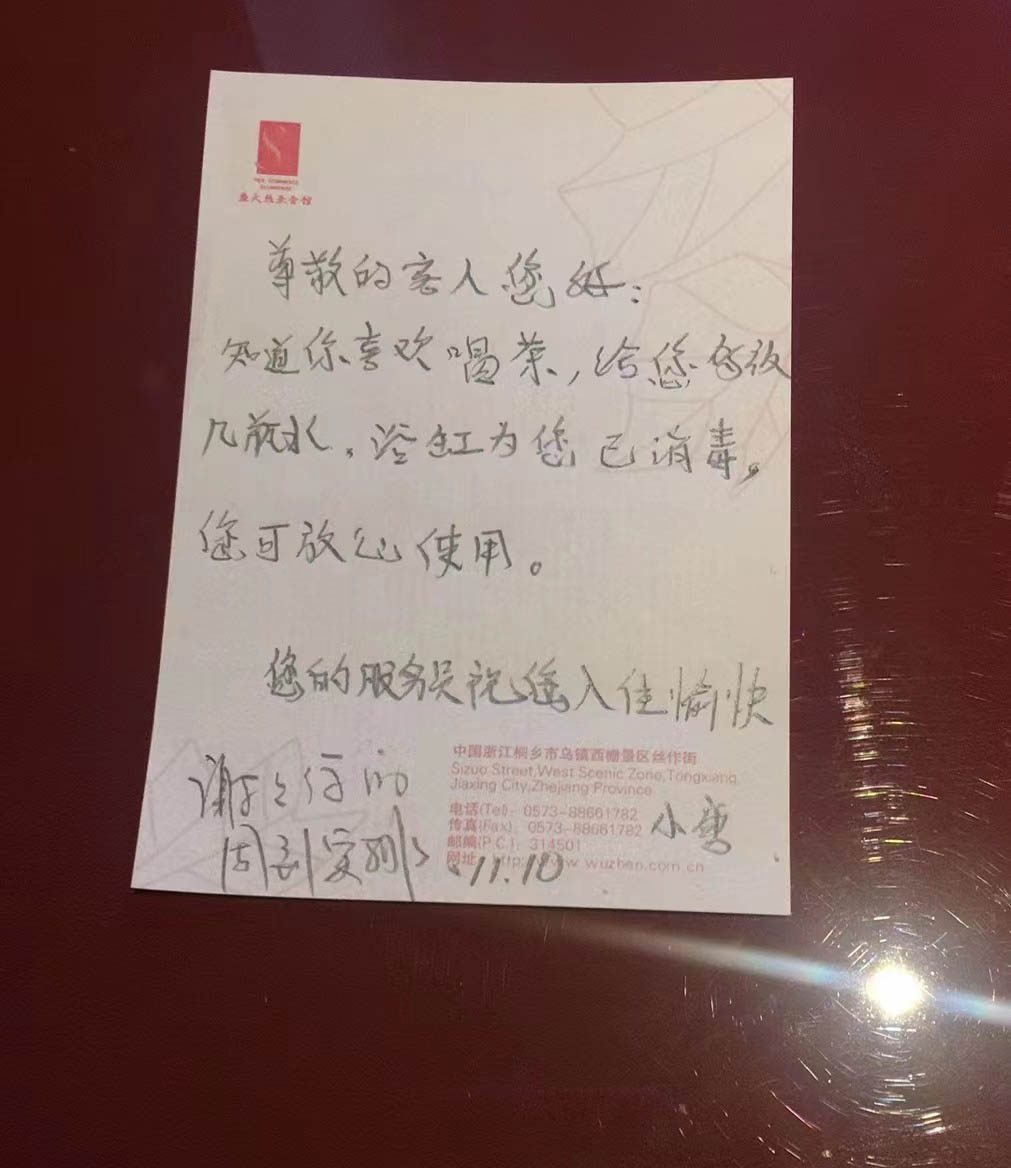 尊敬的客人您好:
知道你喜欢喝茶,给您多放
几瓶水。浴缸为您已消毒。
您可放心使用。
您的服务员祝您入住愉快
中国浙江桐乡市乌镇西栅景区丝作街
Sizuo Street,West Scenic Zone,Tongxiang
Jiaxing City,Zhejiang Province
电话(Tel): 0573-88661782
传真(Fax): 0573-88661782
邮编(P.C.): 314501
网址: http://www.wuzhen.com.cn
谢谢你的
周到
11.10